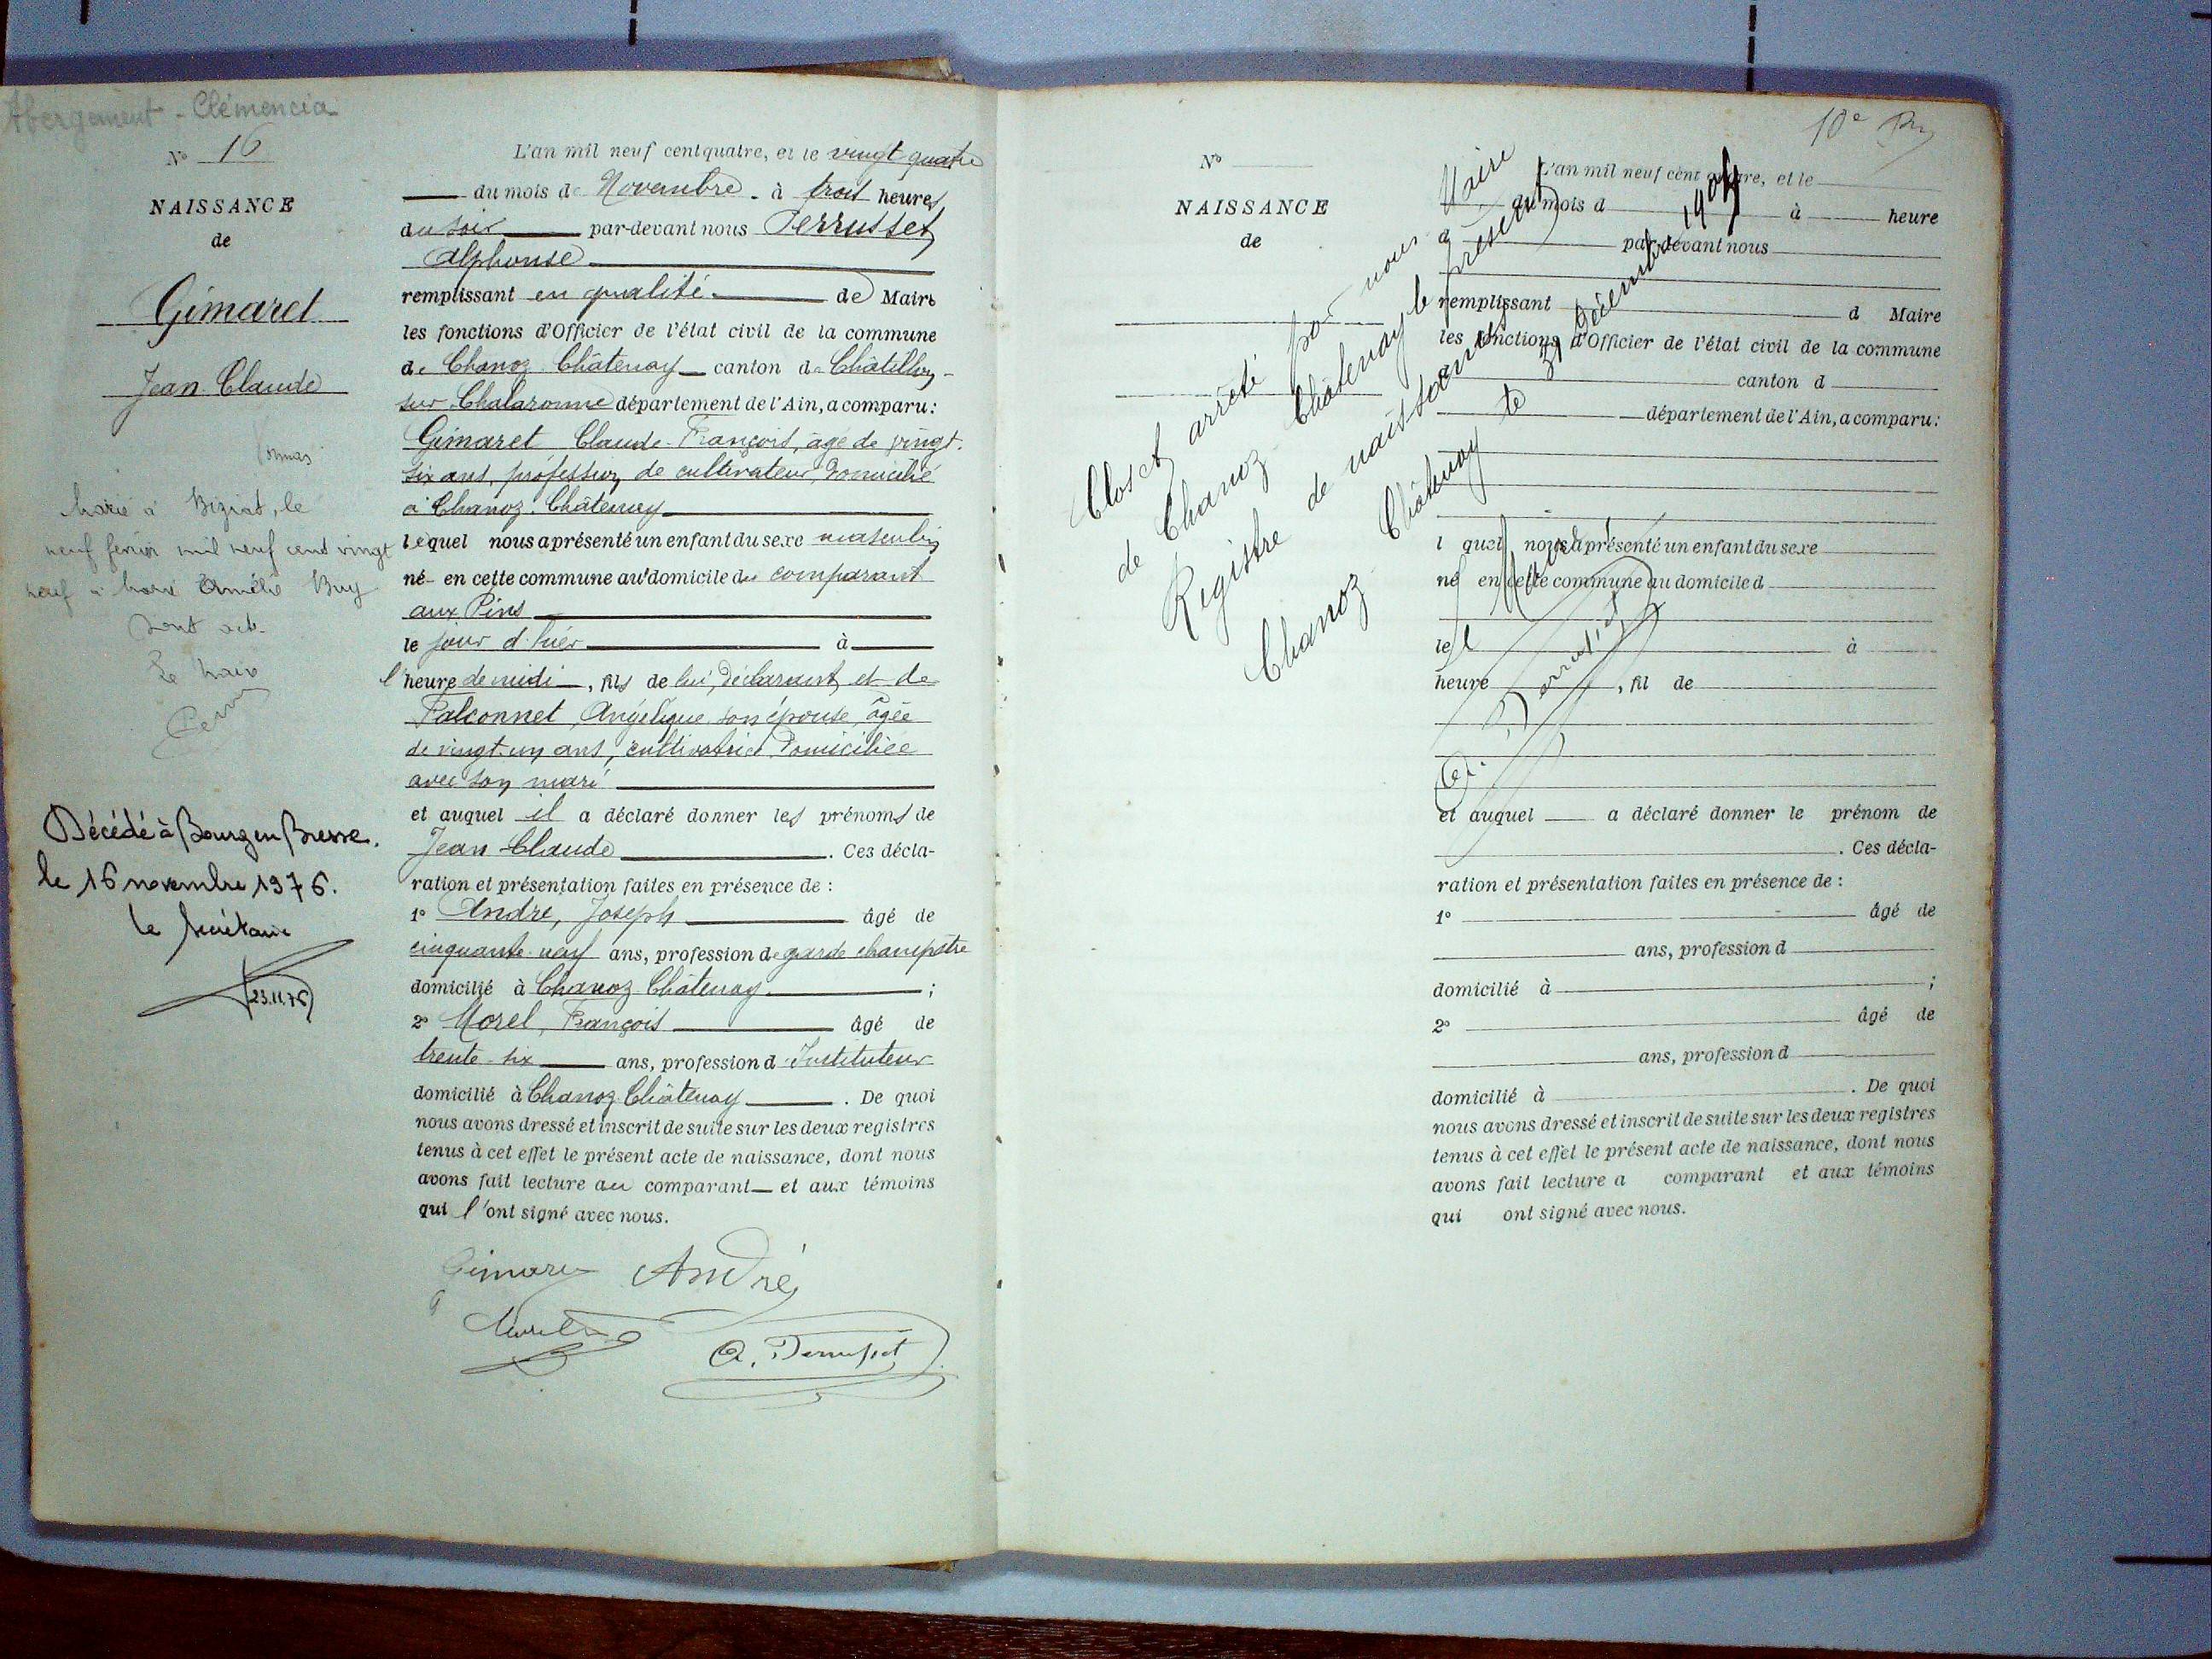 Abergement - Clémencia
N° 16
NAISSANCE
de
Gimaret
Jean Claude
Marié à Biziat, le
neuf février mil neuf cent vingt
neuf à Marie Amélie Buy
Dont acte
Le Maire
Décédé à Bourg en Bresse.
le 16 novembre 1976.
le Secrétaire
23.11.76
L'an mil neuf cent quatre, et le vingt quatre
du mois de Novembre à trois heures
du soir par-devant nous Perrusset
Alphonse
remplissant en qualité de Maire
les fonctions d'Officier de l'état civil de la commune
de Chanoz Châtenay canton de Châtillon-
sur Chalaronne département de l'Ain, a comparu:
Gimaret Claude-François, âgé de vingt-
six ans, profession de cultivateur, domicilié
à Chanoz-Châtenay
lequel nous a présenté un enfant du sexe masculin
né en cette commune au domicile du comparant
aux Pins
le jour d'hier à
l'heure de midi, fils de lui, déclarant, et de
Falconnet, Angélique son épouse, âgée
de vingt-un ans, cultivatrice domiciliée
avec son mari
et auquel il a déclaré donner les prénoms de
Jean-Claude. Ces décla-
ration et présentation faites en présence de :
1° André, Joseph âgé de
cinquante-neuf ans, profession de garde champêtre
domicilié à Chanoz Châtenay ;
2° Morel, François âgé de
trente-six ans, profession d'Instituteur
domicilié à Chanoz Châtenay. De quoi
nous avons dressé et inscrit de suite sur les deux registres
tenus à cet effet le présent acte de naissance, dont nous
avons fait lecture au comparant et aux témoins
qui l'ont signé avec nous.
Gimaret André
Morel
A. Perrusset
10e
N°
NAISSANCE
de
L'an mil neuf cent quatre, et le
du mois d à heure
d par-devant nous
remplissant d Maire
les fonctions d'Officier de l'état civil de la commune
canton d
département de l'Ain, a comparu:
l quel nous a présenté un enfant du sexe
né en cette commune au domicile d
le à
heure , fil de
et auquel a déclaré donner le prénom de
. Ces décla-
ration et présentation faites en présence de :
1° âgé de
ans, profession d
domicilié à ;
2° âgé de
ans, profession d
domicilié à . De quoi
nous avons dressé et inscrit de suite sur les deux registres
tenus à cet effet le présent acte de naissance, dont nous
avons fait lecture a comparant et aux témoins
qui ont signé avec nous.
Clos et arrêté par nous Maire
de Chanoz Châtenay le présent
Registre de naissances
Chanoz Châtenay le 31 Décembre 1904
Le Maire
A. Perrusset